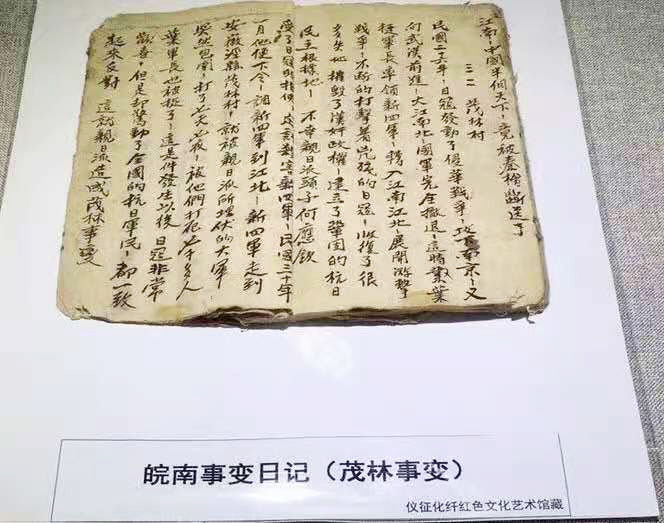 江南、中國半個天下、竟被秦檜斷送了
三二 茂林村
民國二六年、日寇發動了侵華戰爭、攻下南京、又
向武漢前進、大江南北、國軍完全撤退、這時葉
挺軍長率領新四軍、轉入江南江北、展開游擊
戰爭、不斷的打擊着兇殘的日寇、收復了很
多失地、摧毀了漢奸政權、建立了鞏固的抗日
民主根據地、不幸親日派頭子何應欽
受了日寇的指使、害新四軍、民國三十年
一月他便下令、調新四軍到江北、新四軍走到
安徽涇縣茂林村、就被親日派所埋伏的大軍
突然包圍、打了七天七夜、被他們打死七千多人
葉軍長也被捉了、這是件發生以後 日寇非常
歡喜、但是却驚動了全國的抗日軍民、都一致
起來反對 這就親日派造成茂林事變
皖南事变日记（茂林事变）
仪征化纤红色文化艺术馆藏